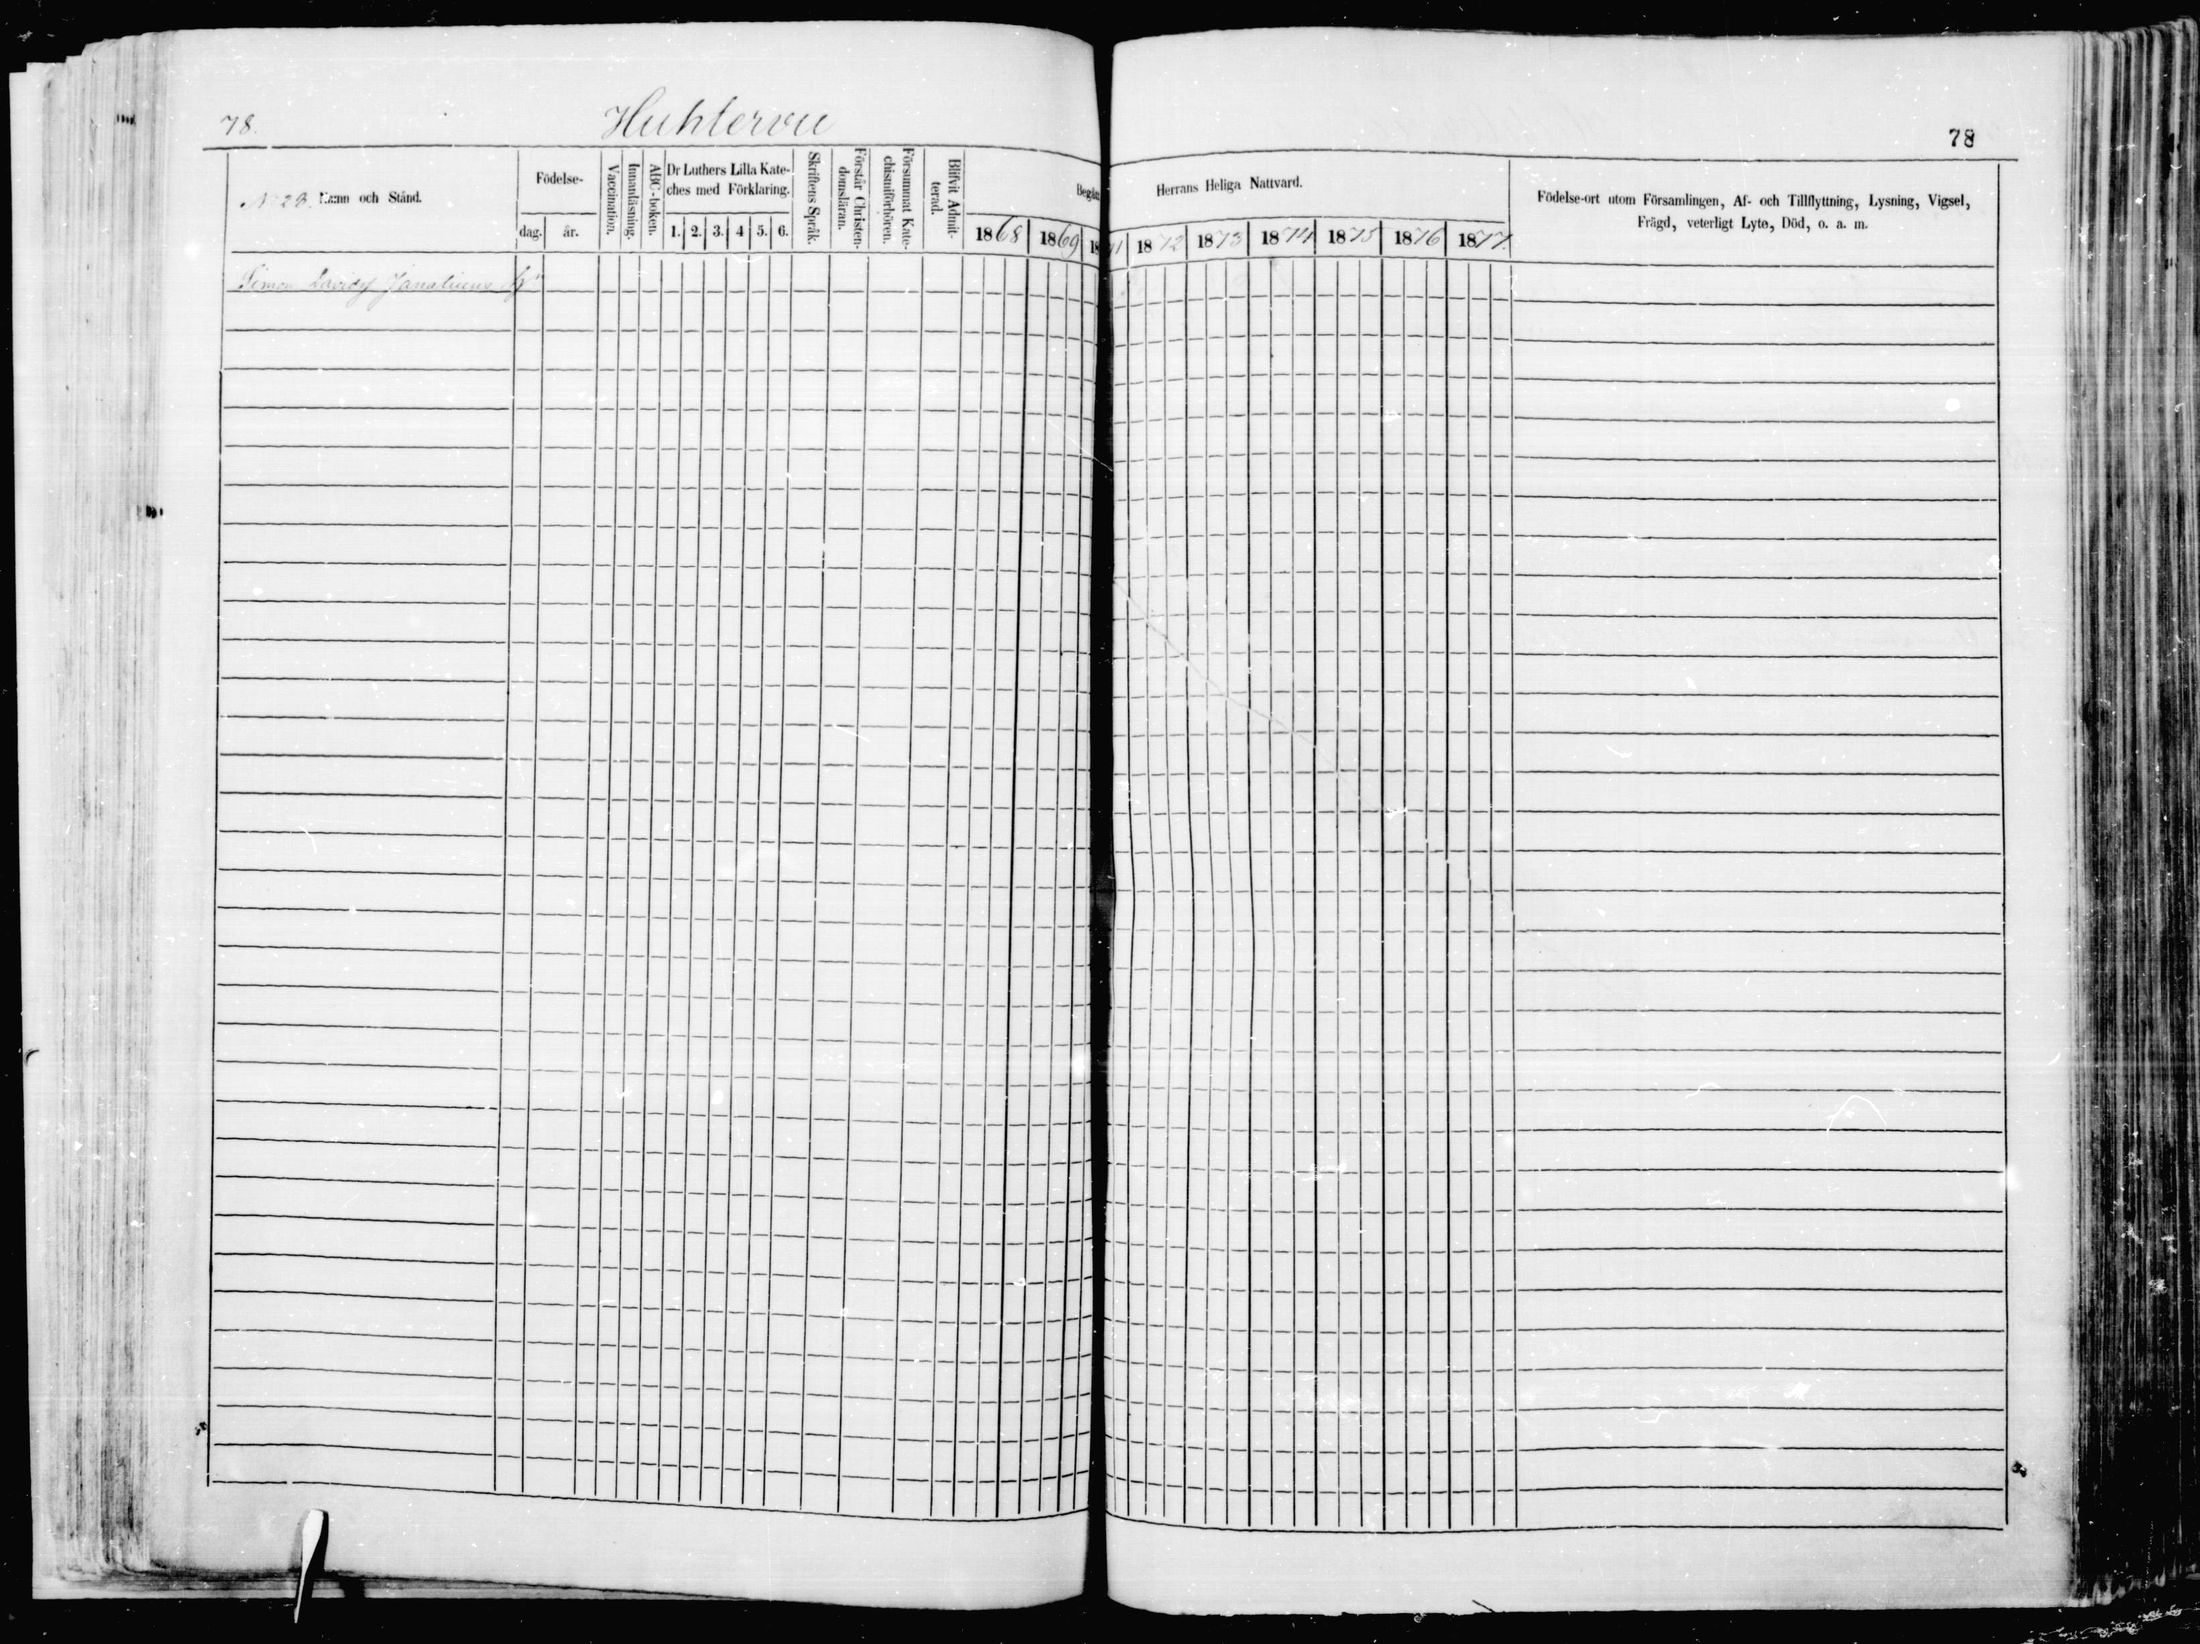 78.
Huhtervu
78
No 23. Namn och Stånd.
Födelse-
dag.
år.
Vaccination.
Innanläsning.
ABC-boken.
Dr Luthers Lilla Kate-
ches med Förklaring.
1. 2. 3. 4 5. 6.
Skriftens Språk.
Förstår Christen-
domsläran.
Försummat Kate-
chismiförhören.
Blifvit Admit-
terad.
Begå
Herrans Heliga Nattvard.
1868 1869 18
71 1872 1873 1874 1875 1876 1877.
Födelse-ort utom Församlingen, Af- och Tillflyttning, Lysning, Vigsel,
Frägd, veterligt Lyte, Död, o. a. m.
Simon Davidsf